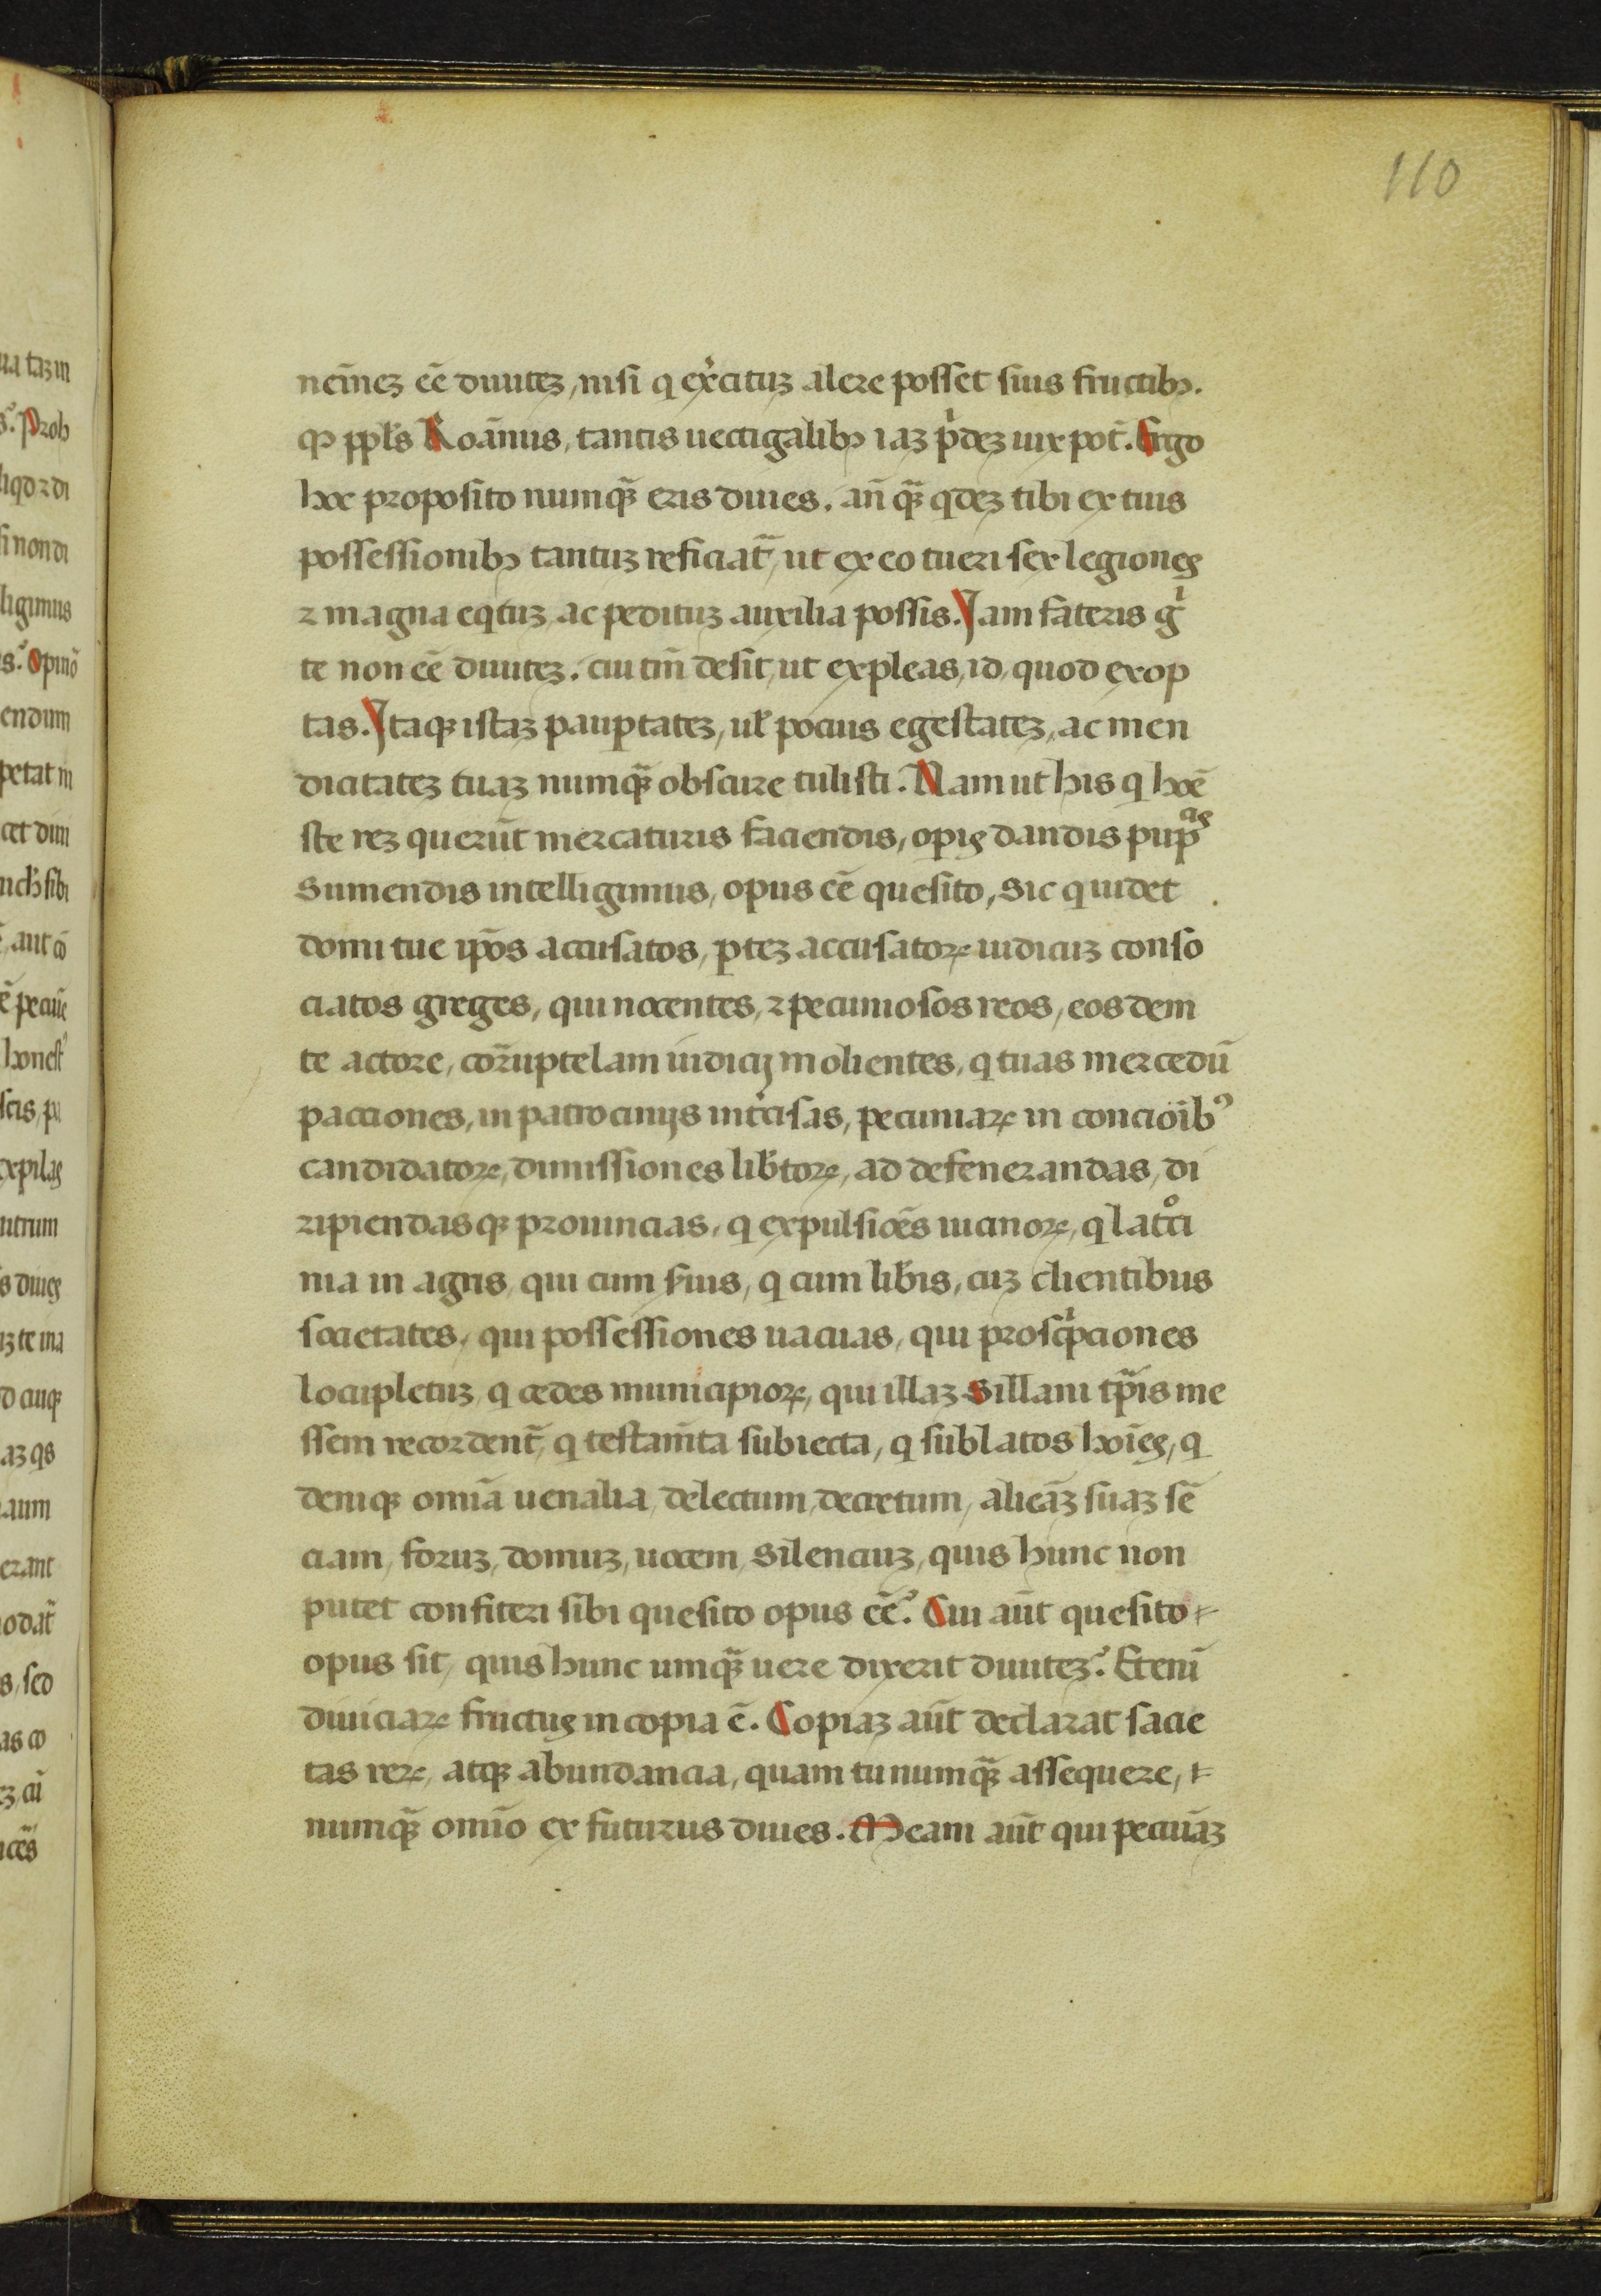 110
nemīeȝ eē diuiteȝ, nisi q exͥcituȝ alere posset suis fructibꝫ.
qꝫ ppľs Roānus, tantis uectigalibꝫ iaȝ pͥdeȝ uix pot̄. Ergo
hoc proposito numꝗ̃ eris diues. an̄ ꝗ̃ qdeȝ tibi ex tuis
possessionibꝫ tantuȝ reficiat᷑, ut ex eo tueri sex legiones
⁊ magna eqtuȝ ac pedituȝ auxilia possis. Iam fateris gͥ
te non eē diuiteȝ. cui tm̄ desit, ut expleas, id, quod exop
tas. Itaqꝫ istaȝ paupͭateȝ, uľ pocius egestateȝ, ac men
dicitateȝ tuaȝ numꝗ̃ obscure tulisti. Nam ut his q hoē
ste reȝ querūt mercaturis faciendis, opis dandis pup͛ᵃˢ
sumendis intelligimus, opus eē quesito, sic q uidet
domi tue ip̄os accusatos, ꝑteȝ accusatoꝝ iudicuȝ conso
ciatos greges, qui nocentes, ⁊ pecuniosos reos, eosdem
te actore, cor̄uptelam iudicij molientes, q tuas mercedū
pacciones, in patrocinijs intͥcisas, pecuniaꝝ in concioīb᷒
candidatoꝝ, dimissiones lib̄toꝝ, ad defenerandas, di
ripiendasqꝫ prouincias, q expulsiōes uicinoꝝ, q latͦci
nia in agris, qui cum s̄uis, q cum lib̄is, cuȝ clientibus
societates, qui possessiones uacuas, qui proscͥpciones
locupletuȝ, q cedes municipioꝝ, qui illaȝ Sillani tp̄is me
ssem recordent᷑, q testam̄ta subiecta, q sublatos hoīes, q
deniqꝫ omīa uenalia, delectum, decretum, alienāȝ suaȝ sē
ciam, foruȝ, domuȝ, uocem, silenciuȝ, quis hunc non
putet confiteri sibi quesito opus eē? Cui aūt quesito
opus sit, quis hunc umꝗ̃ uere dixerit diuiteȝ? Etenī
diuiciaꝝ fructus in copia ē. Copiaȝ aūt declarat sacie
tas reꝝ, atqꝫ abundancia, quam tu numꝗ̃ assequere,
numꝗ̃ omīo ex futurus diues. Meam aūt qui pecuīaȝ